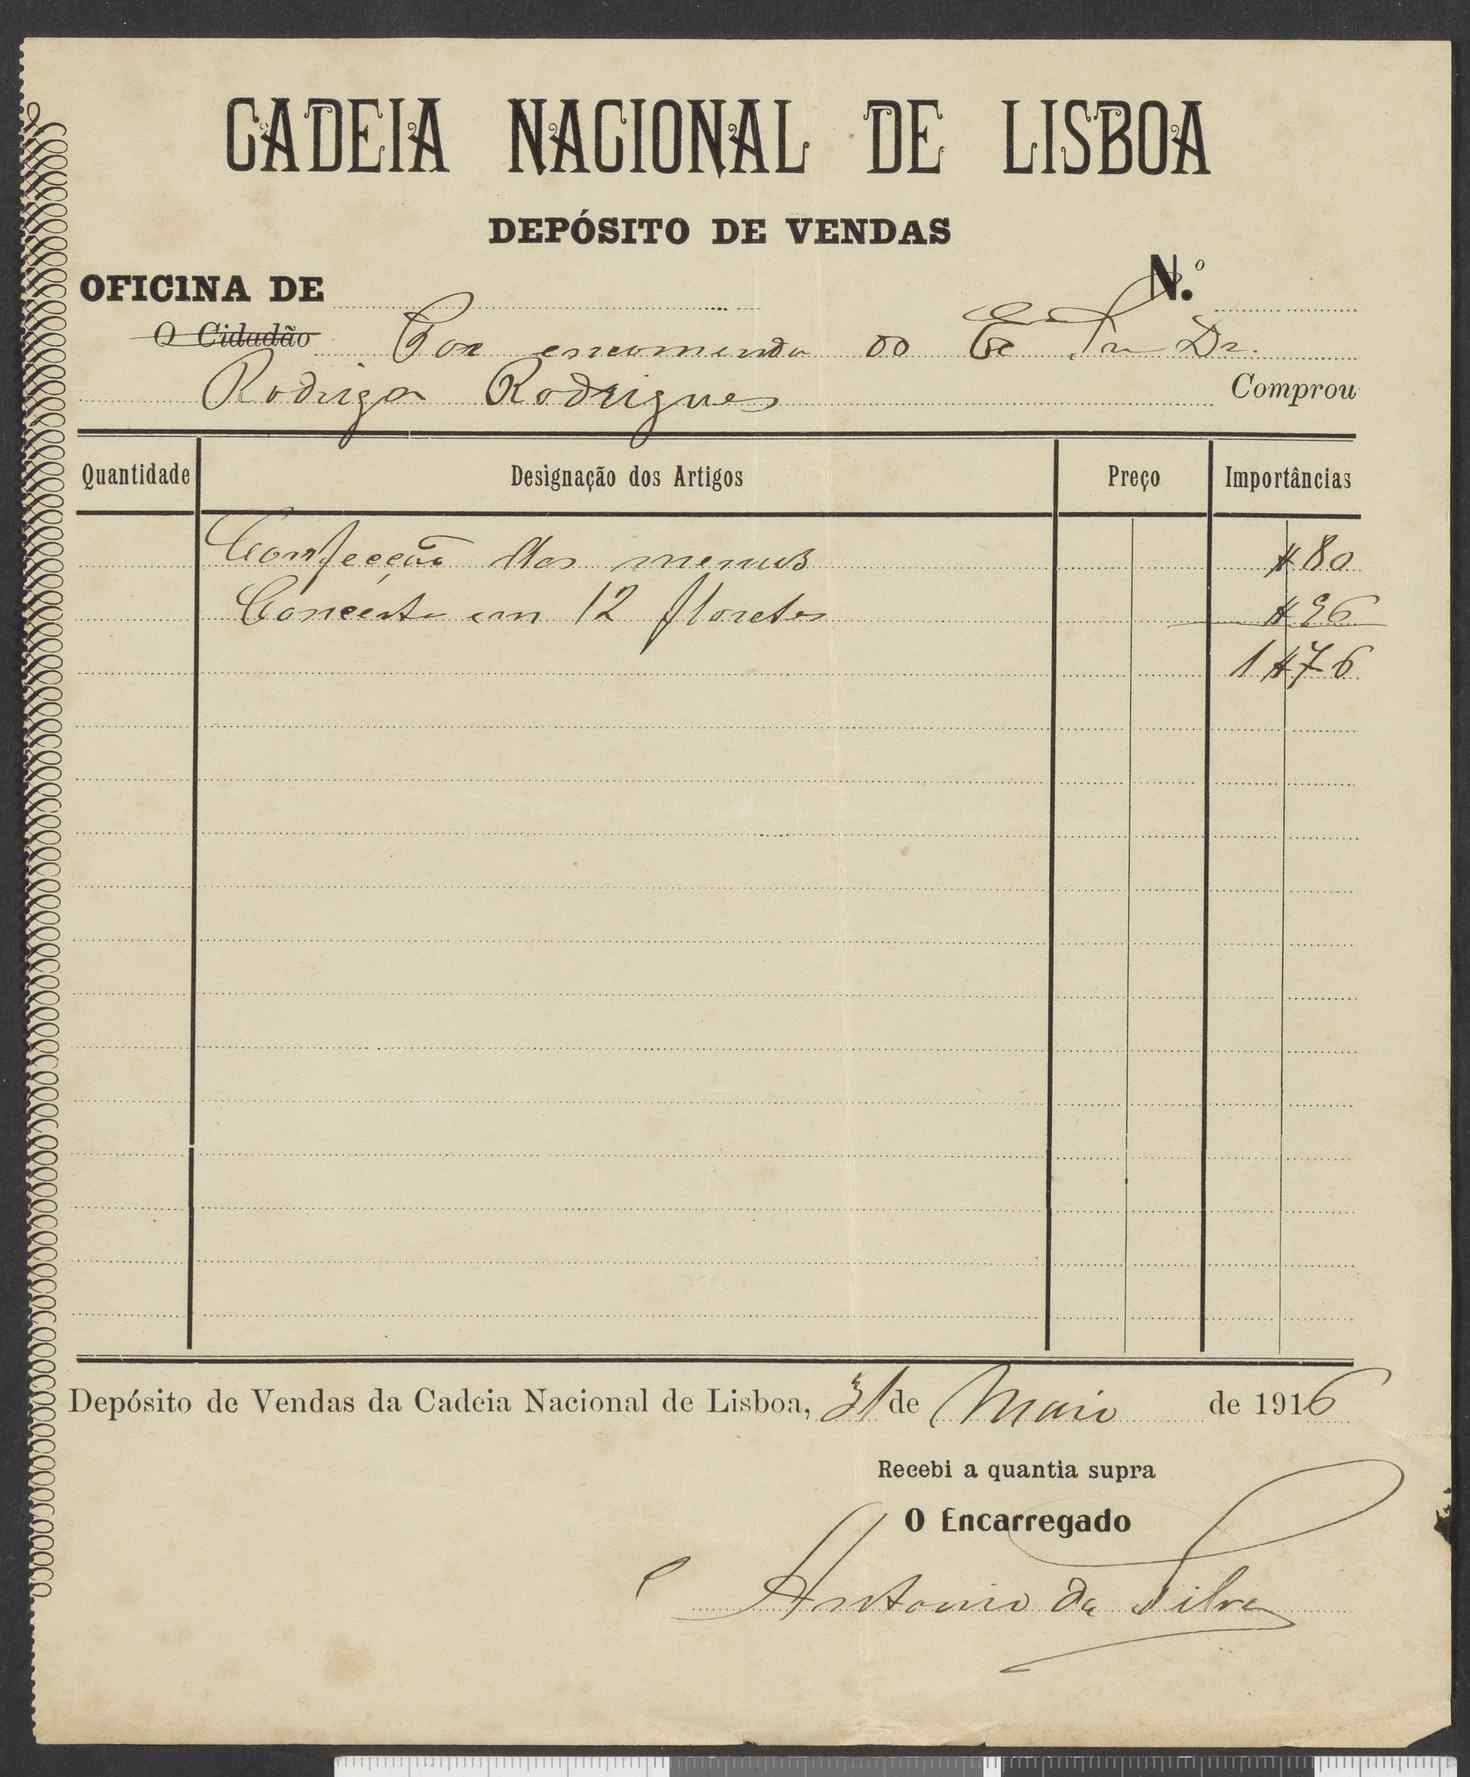 CADEIA NACIONAL DE LISBOA
DEPÓSITO DE VENDAS
OFICINA DE N.º
O Cidadão Por encomenda do Ex Sr Dr.
Rodrigo Rodrigues Comprou
Quantidade Designação dos Artigos Preço Importâncias
Confecção dos menus $80
Concerto em 12 floretes $96
1$76
Depósito de Vendas da Cadeia Nacional de Lisboa, 31 de Maio de 1916
Recebi a quantia supra
O Encarregado
Antonio da Silva